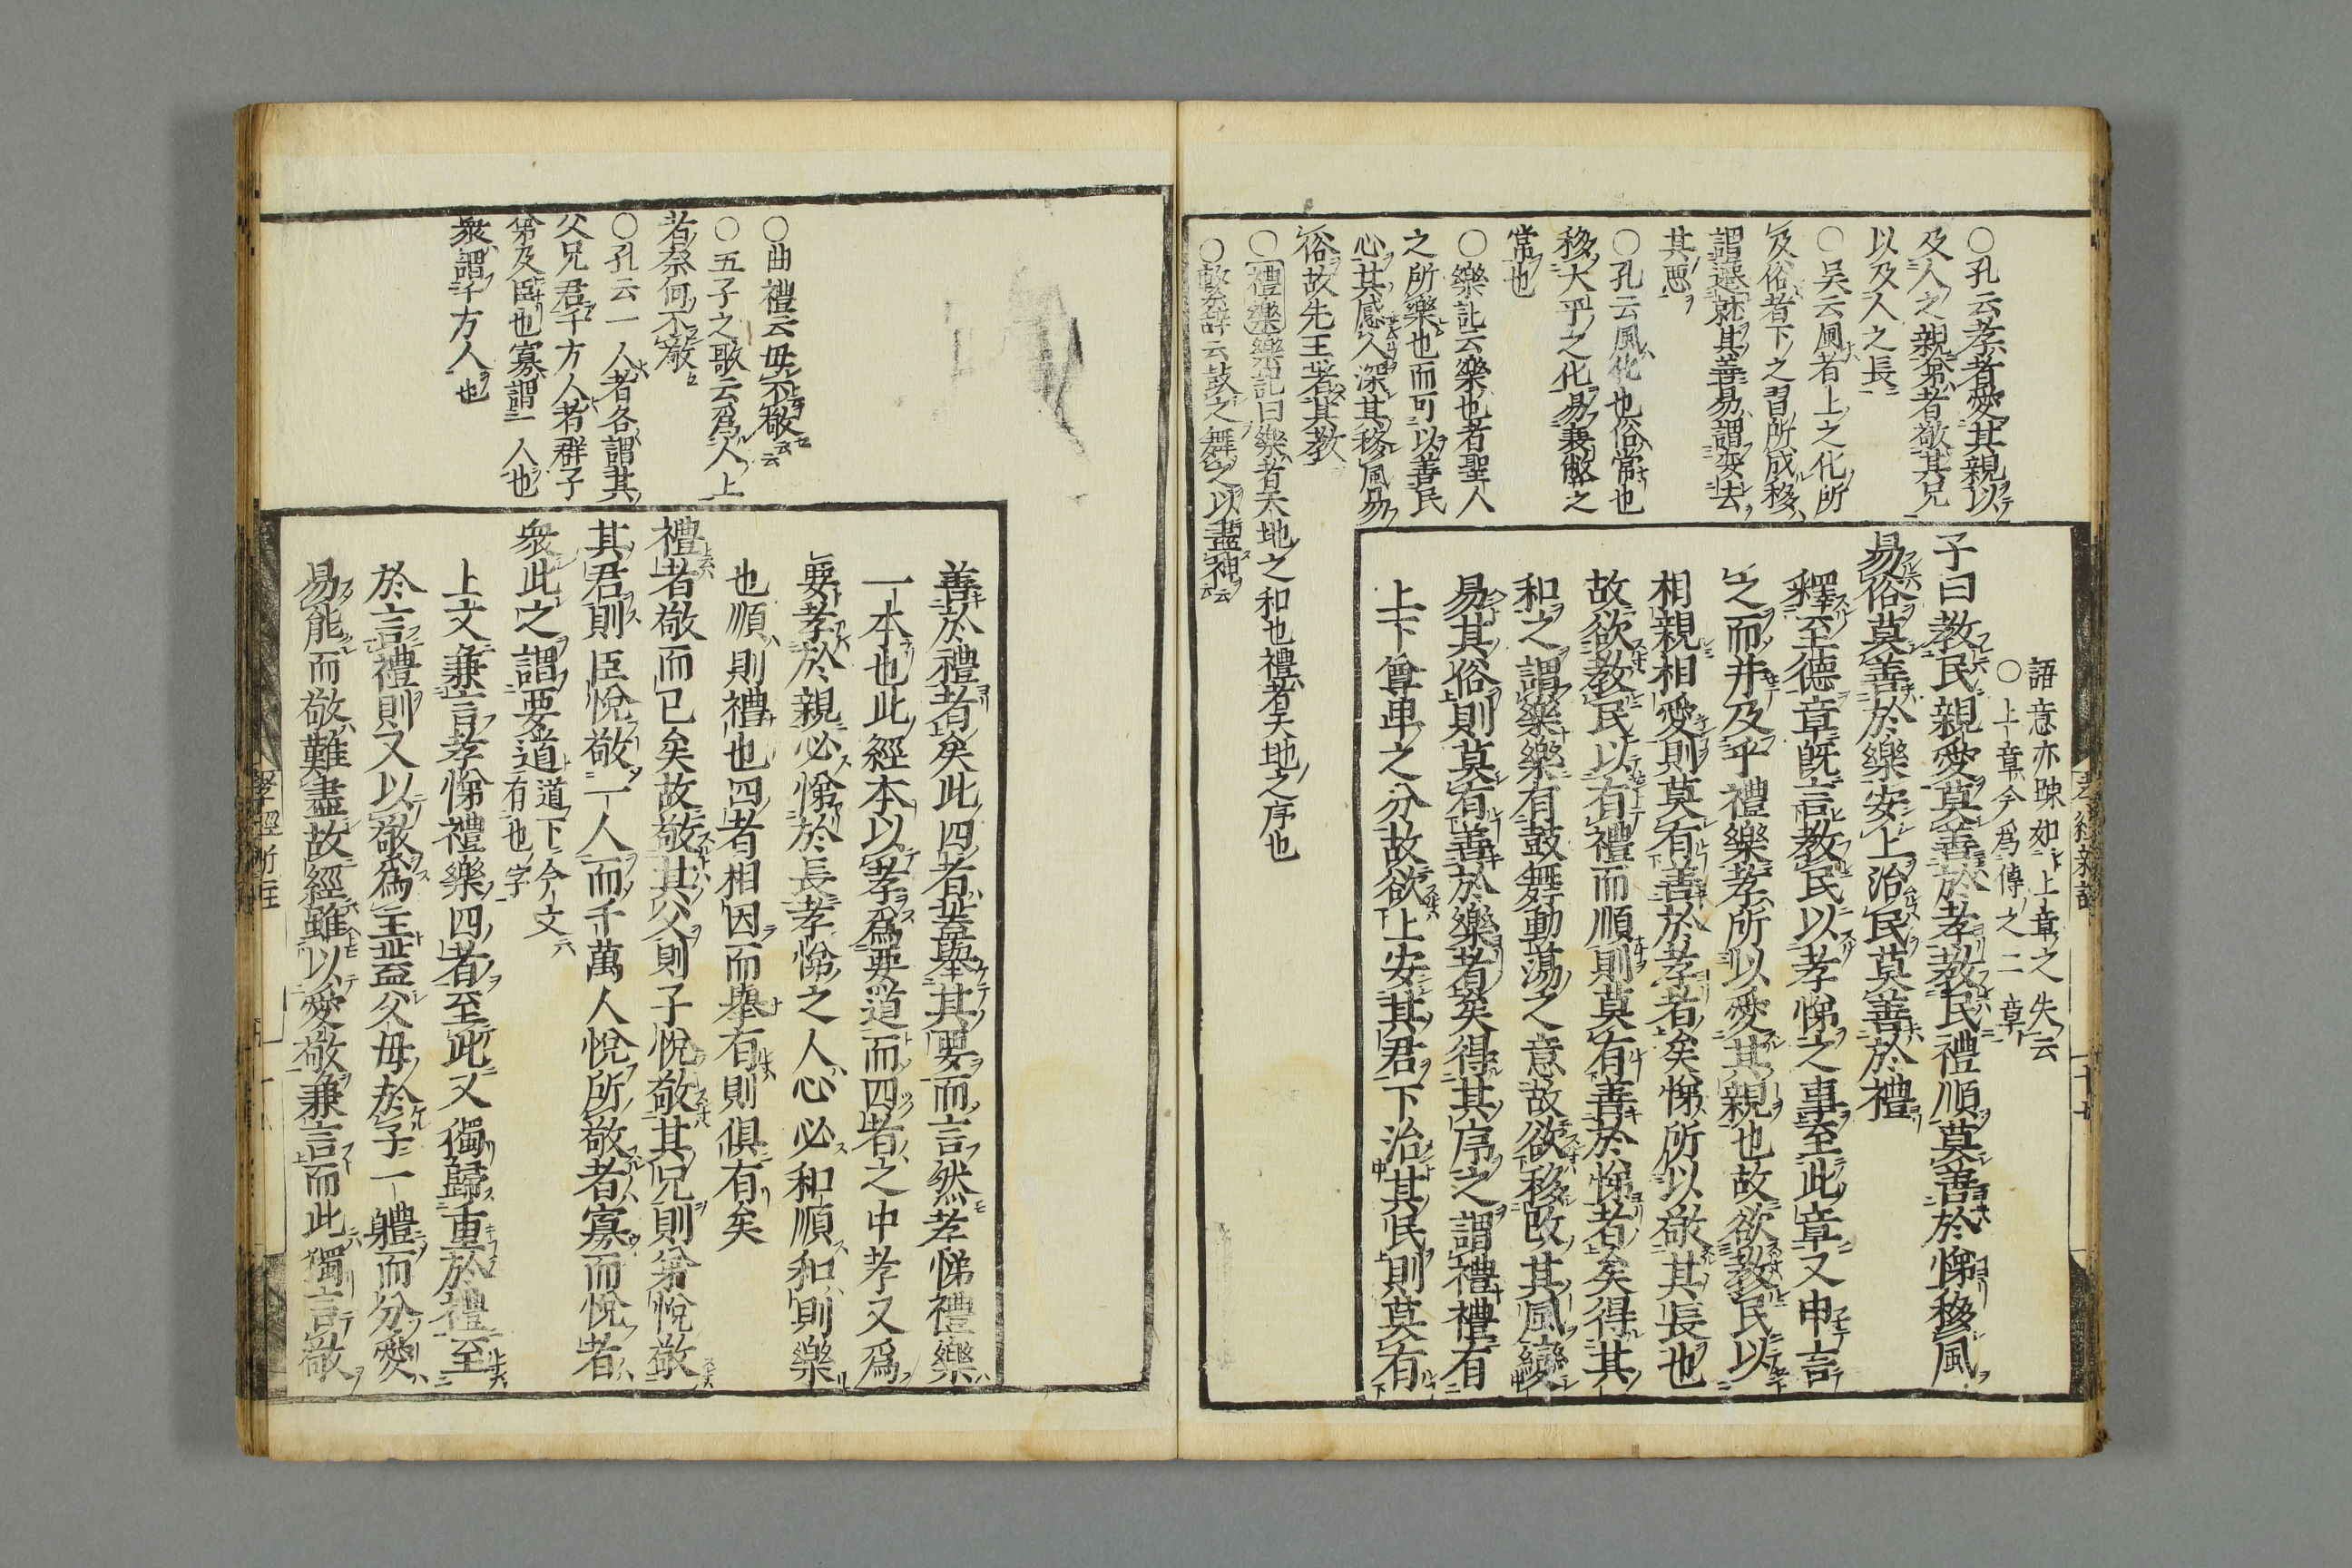 〇孔云孝者愛其親以
及人之親弟者敬其兄
以及人之長
〇吴云風者上之化所
及俗者下之習所成移
謂遷就其善易謂変去
其悪
〇孔云風化也俗常也
移大平之化易衰弊之
常也
〇樂記云樂也者聖人
之所樂也而可以善民
心其感人深其移風易
俗故先王著其教
〇禮樂樂記曰樂者天地之和也禮者天地之序也
〇繫辞云鼓之舞之以盡神云
語意亦踈如上章之失云
〇上章今爲傳之二章
子曰教民親愛莫善於孝教民禮順莫善於悌移風
易俗莫善於樂安上治民莫善於禮
釋至德章既言教民以孝悌之事至此章又申言
之而并及乎禮樂孝所以愛其親也故欲教民以
相親相愛則莫有善於孝者矣悌所以敬其長也
故欲教民以有禮而順則莫有善於悌者矣得其
和之謂樂樂有鼓舞動蕩之意故欲移改其風變
易其俗則莫有善於樂者矣得其序之謂禮禮有
上下尊卑之分故欲上安其君下治其民則莫有
〇曲禮云毋不敬云云
〇五子之歌云爲人上
者奈何不敬
〇孔云一人者各謂其
父兄君千方人者群子
弟及臣也寡謂一人也
衆謂千方人也
善於禮者矣此四者蓋舉其要而言然孝悌禮樂
一本也此經本以孝爲要道而四者之中孝又爲
要孝於親必悌於長孝悌之人心必和順和則樂
也順則禮也四者相因而舉有則俱有矣
禮者敬而已矣故敬其父則子悅敬其兄則弟悅敬
其君則臣悅敬一人而千萬人悅所敬者寡而悅者
衆此之謂要道道下今文有也字
上文兼言孝悌禮樂四者至此又獨歸重於禮至
於言禮則又以敬爲主蓋父母於子一體而分愛
易能而敬難盡故經雖以愛敬兼言而此獨言敬